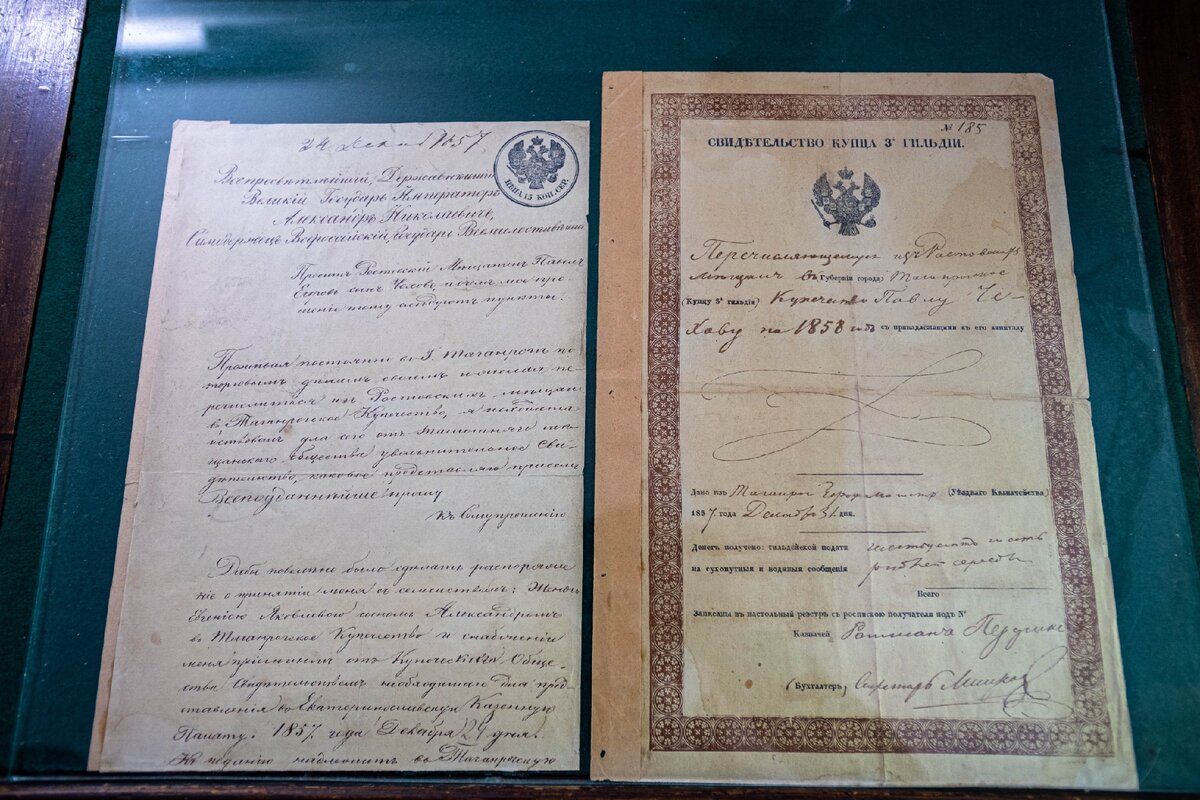 24 Декаб 1857
ЦѢНА 15 КОП. СЕР.
Всепресвѣтлѣйшій, Державнѣйшій
Великій Государь Императоръ
Александръ Николаевичъ,
Самодержецъ Всероссійскій, Государь Всемилостивѣйшій
Проситъ Ростовскій Мѣщанинъ Павелъ
Егоровъ сынъ Чеховъ, а о чемъ мое про
шеніе тому слѣдуютъ пункты:
Проживая постоянно въ Г. Таганрогѣ по
торговымъ дѣламъ своимъ и желая пе
речислиться изъ Ростовскихъ мѣщанъ
въ Таганрогское Купечество, я
для сего отъ мѣ
щанскаго общества увольнительное Сви
дѣтельство, каковое представляя при семъ
Всеподданнѣйше прошу
Къ Сему прошенію
Дабы повелѣно было сдѣлать распоряже
ніе о принятіи меня съ семействомъ: Женою
Евгеніею Яковлевою сыномъ Александромъ
въ Таганрогское Купечество и снабженіи
меня отъ Купеческаго Обще
ства Свидѣтельствомъ необходимымъ для пред
ставленія въ Екатеринославскую Казенную
Палату. 1857 года Декабря 24 дня.
Къ поданію надлежитъ въ Таганрогскую
№ 185
СВИДѢТЕЛЬСТВО КУПЦА 3й ГИЛЬДІИ.
Перечисляющемуся изъ Ростовскихъ
мѣщанъ въ (Губерніи города) Таганрогское
(Купцу 3й гильдіи) Купечество Павлу Че-
хову на 1858 годъ съ принадлежащими къ его капиталу
Дано изъ Таганрог (Уѣзднаго Казначейства)
1857 года Декабря 31 дня.
Денегъ получено: гильдейской подати шестьдесятъ шесть
на сухопутныя и водяныя сообщенія рублей серебр
Всего
Записаны въ настольный реэстръ съ роспискою получателя подъ №
Казначей Ратмана
(Бухгалтеръ) Секретарь